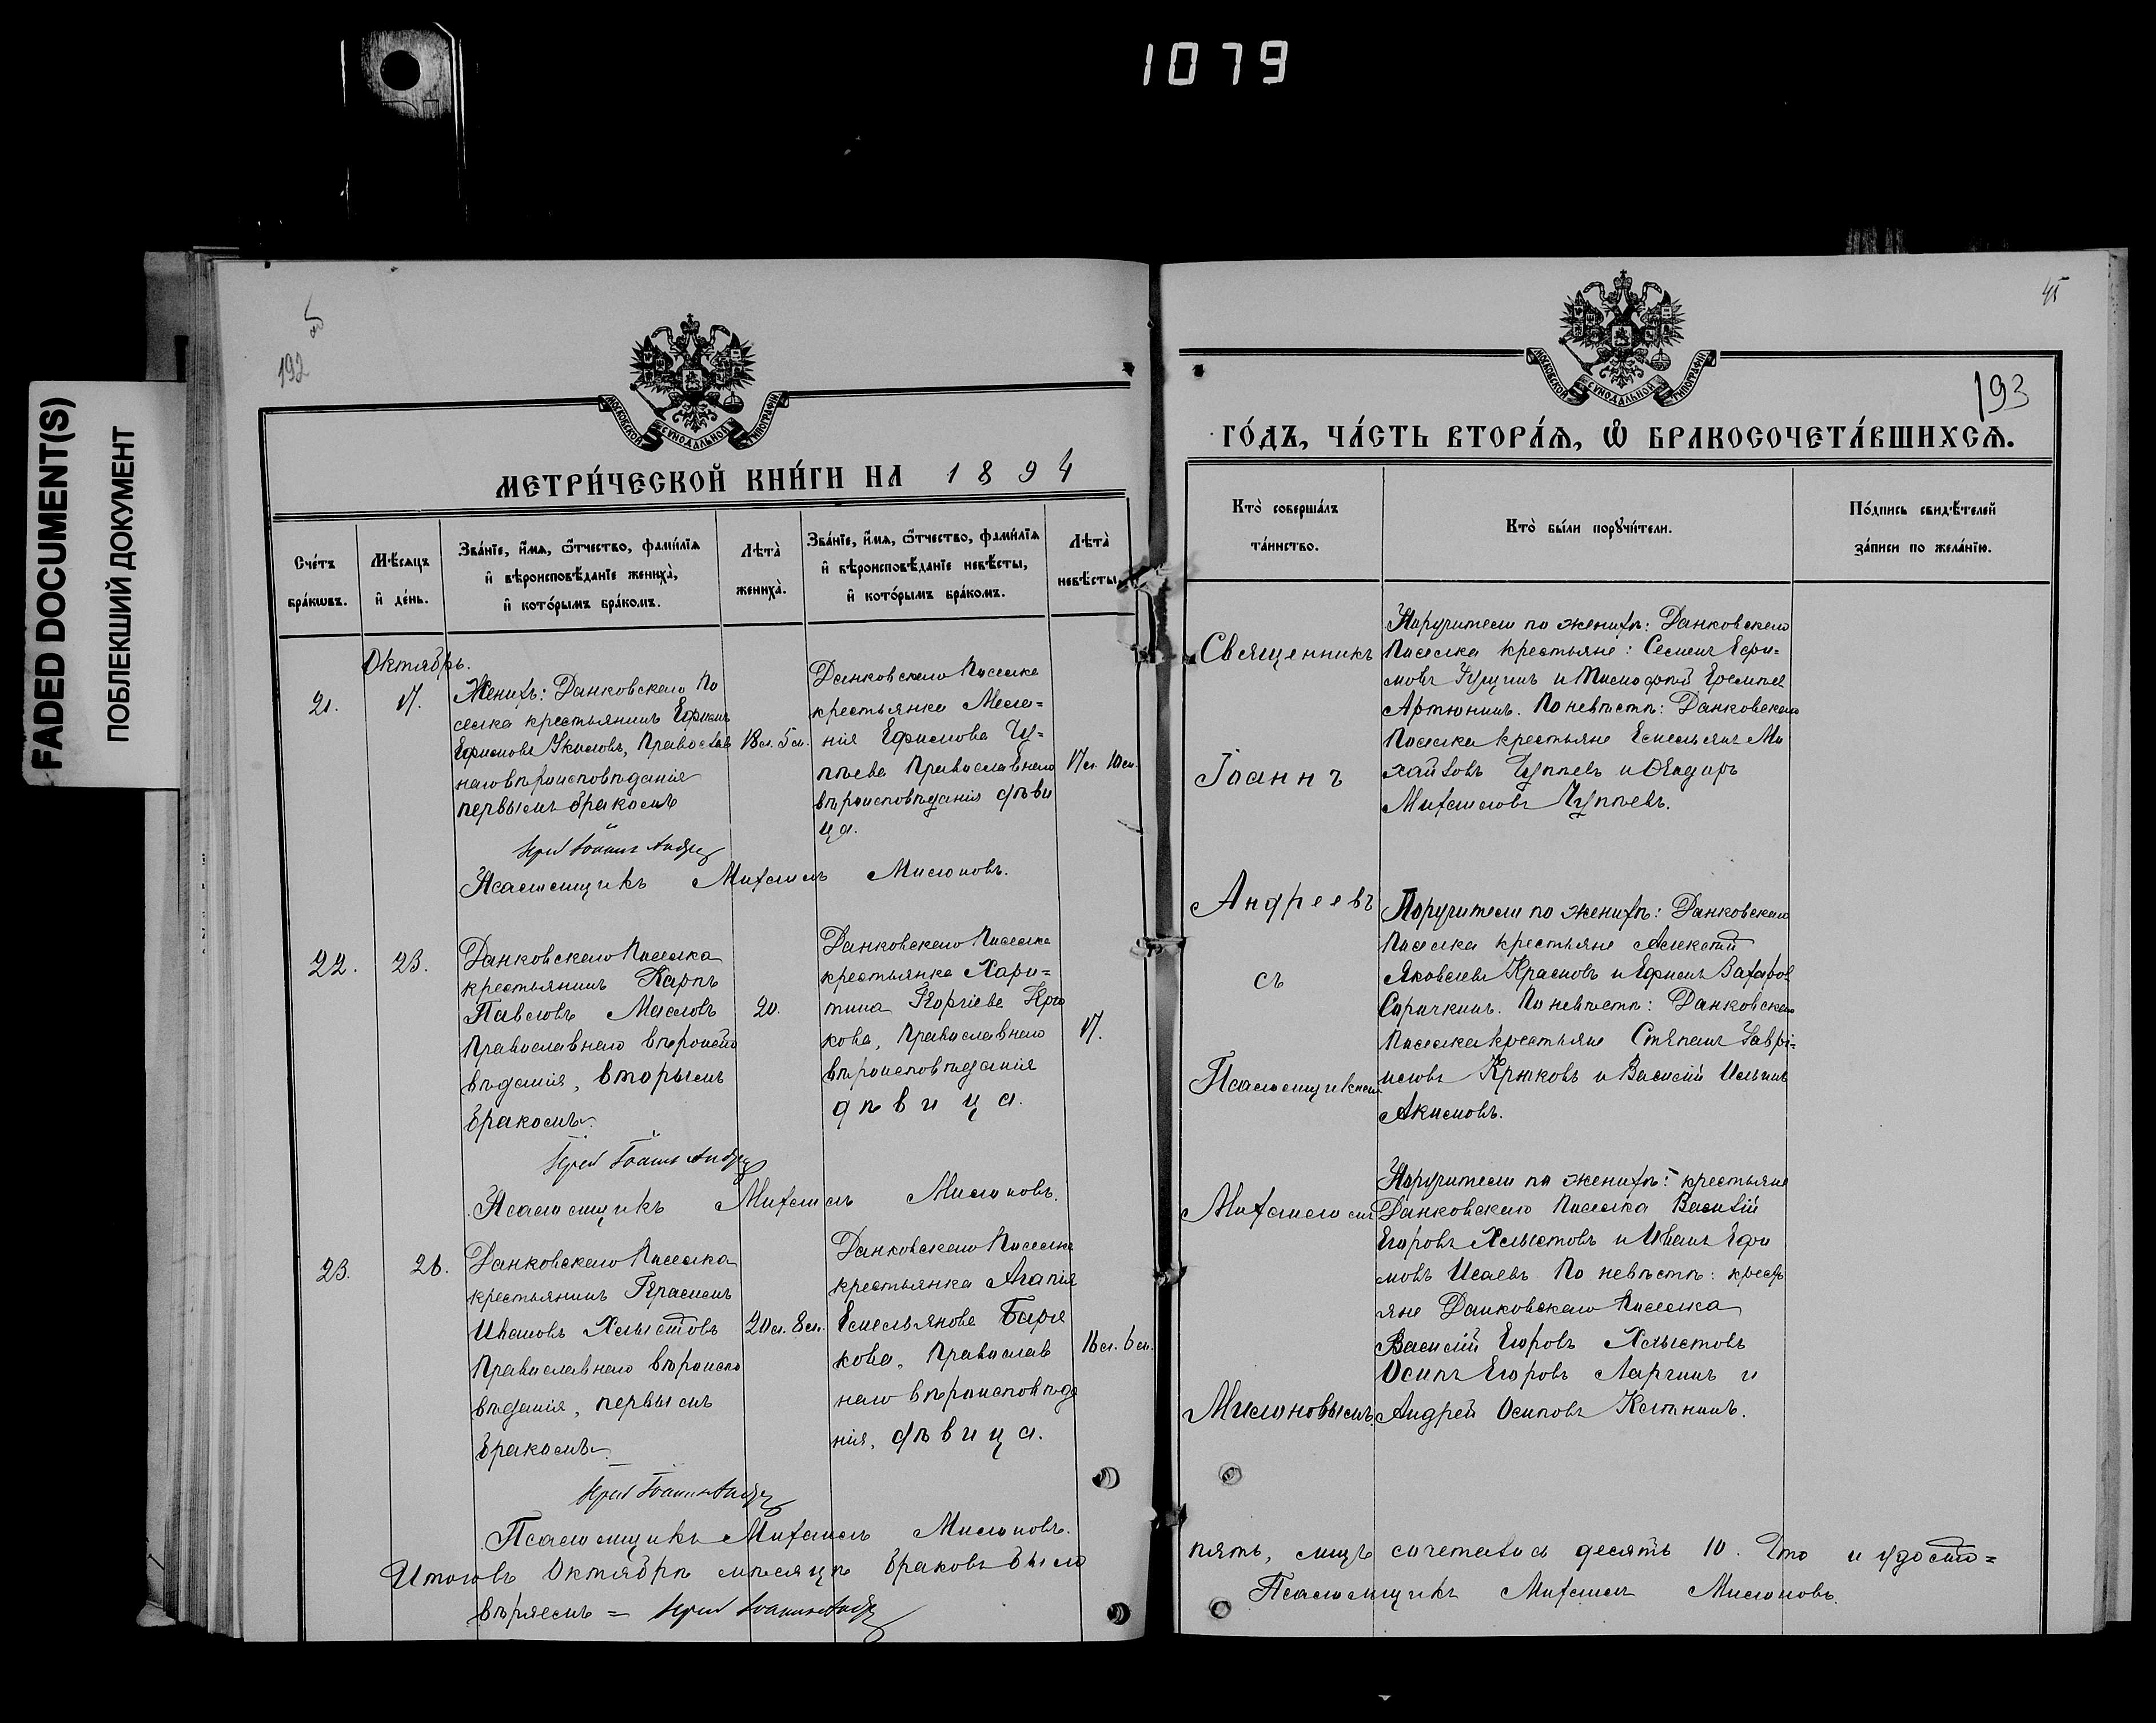 1079
FADED DOCUMENT(S)
ПОБЛЕКШИЙ ДОКУМЕНТ
192
МОСКОВСКОЙ СѴНОДАЛЬНОЙ ТИПОГРАФІИ
МЕТРИ́ЧЕСКОЙ КНИ́ГИ НА 1894
Сче́тъ бра́кѡвъ.
Мѣ́сѧцъ и҆ де́нь.
Зва́нїе, и҆́мѧ, ѻ҆́тчество, фами́лїѧ и҆ вѣроисповѣ́данїе жениха̀, и҆ кото́рымъ бра́комъ.
Лѣта̀ жениха̀.
Зва́нїе, и҆́мѧ, ѻ҆́тчество, фами́лїѧ и҆ вѣроисповѣ́данїе невѣ́сты, и҆ кото́рымъ бра́комъ.
Лѣта̀ невѣ́сты.
Октябрь.
21.
17.
Женихъ: Данковскаго По
селка крестьянинъ Ефимъ
Ефимовъ Православ
наго вѣроисповѣданія
первымъ бракомъ
18 л. 5 м.
Данковскаго Поселка
крестьянка Мела=
нія Ефимова Чу=
пѣева Православнаго
вѣроисповѣданія дѣви
ца.
17 л. 10 м.
Іерей Іоаннъ Андреевъ
Псаломщикъ Михаилъ Милоновъ.
22.
23.
Данковскаго Поселка
крестьянинъ Карпъ
Павловъ Масловъ
Православнаго вѣроиспо
вѣданія, вторымъ
бракомъ.
20.
Данковскаго Поселка
крестьянка Хари=
тина Георгіева Крю
кова, Православнаго
вѣроисповѣданія
дѣвица.
17.
Іерей Іоаннъ Андреевъ
Псаломщикъ Михаилъ Милоновъ.
23.
26.
Данковскаго Поселка
крестьянинъ Герасимъ
Ивановъ Хлыстовъ
Православнаго вѣроиспо
вѣданія, первымъ
бракомъ.
20 л. 8 м.
Данковскаго Поселка
крестьянка Агапія
Емельянова
кова, Православ
наго вѣроисповѣда
нія, дѣвица.
16 л. 6 м.
Іерей Іоаннъ Андреевъ
Псаломщикъ Михаилъ Милоновъ.
Итого въ Октябрѣ мѣсяцѣ браковъ было
вѣряемъ = Іерей Іоаннъ Андреевъ
45
193
МОСКОВСКОЙ СѴНОДАЛЬНОЙ ТИПОГРАФІИ
ГО́ДЪ, ЧА́СТЬ ВТОРА́Ѧ, Ѽ БРАКОСОЧЕТА́ВШИХСѦ.
Кто̀ соверша́лъ та́инство.
Кто̀ бы́ли порꙋчи́тели.
По́дпись свидѣ́телей за́писи по жела́нїю.
Священникъ
Іоаннъ
Андреевъ
съ
Псаломщикомъ
Михаиломъ
Милоновымъ.
Поручители по женихѣ: Данковскаго
Поселка крестьяне: Семенъ Ефи=
мовъ и Тимофей
Артюнинъ. По невѣстѣ: Данковскаго
Поселка крестьяне Емельянъ Ми
хайловъ Чупѣевъ и Ѳедоръ
Михаиловъ Чупѣевъ.
Поручители по женихѣ: Данковскаго
Поселка крестьяне Алексѣй
Яковлевъ Красновъ и Ефимъ Захаров
Саричкинъ. По невѣстѣ: Данковскаго
Поселка крестьяне Степанъ Гаврі=
иловъ Крюковъ и Василій Ильинъ
Акимовъ.
Поручители по женихѣ: крестьяне
Данковскаго Поселка Василій
Егоровъ Хлыстовъ и Иванъ Ефи
мовъ Исаевъ. По невѣстѣ: кресть
яне Данковскаго Поселка
Василій Егоровъ Хлыстовъ
Осипъ Егоровъ Ларгинъ и
Андрей Осиповъ
пять, лицъ сочеталось десять 10. Что и удосто=
Псаломщикъ Михаилъ Милоновъ.